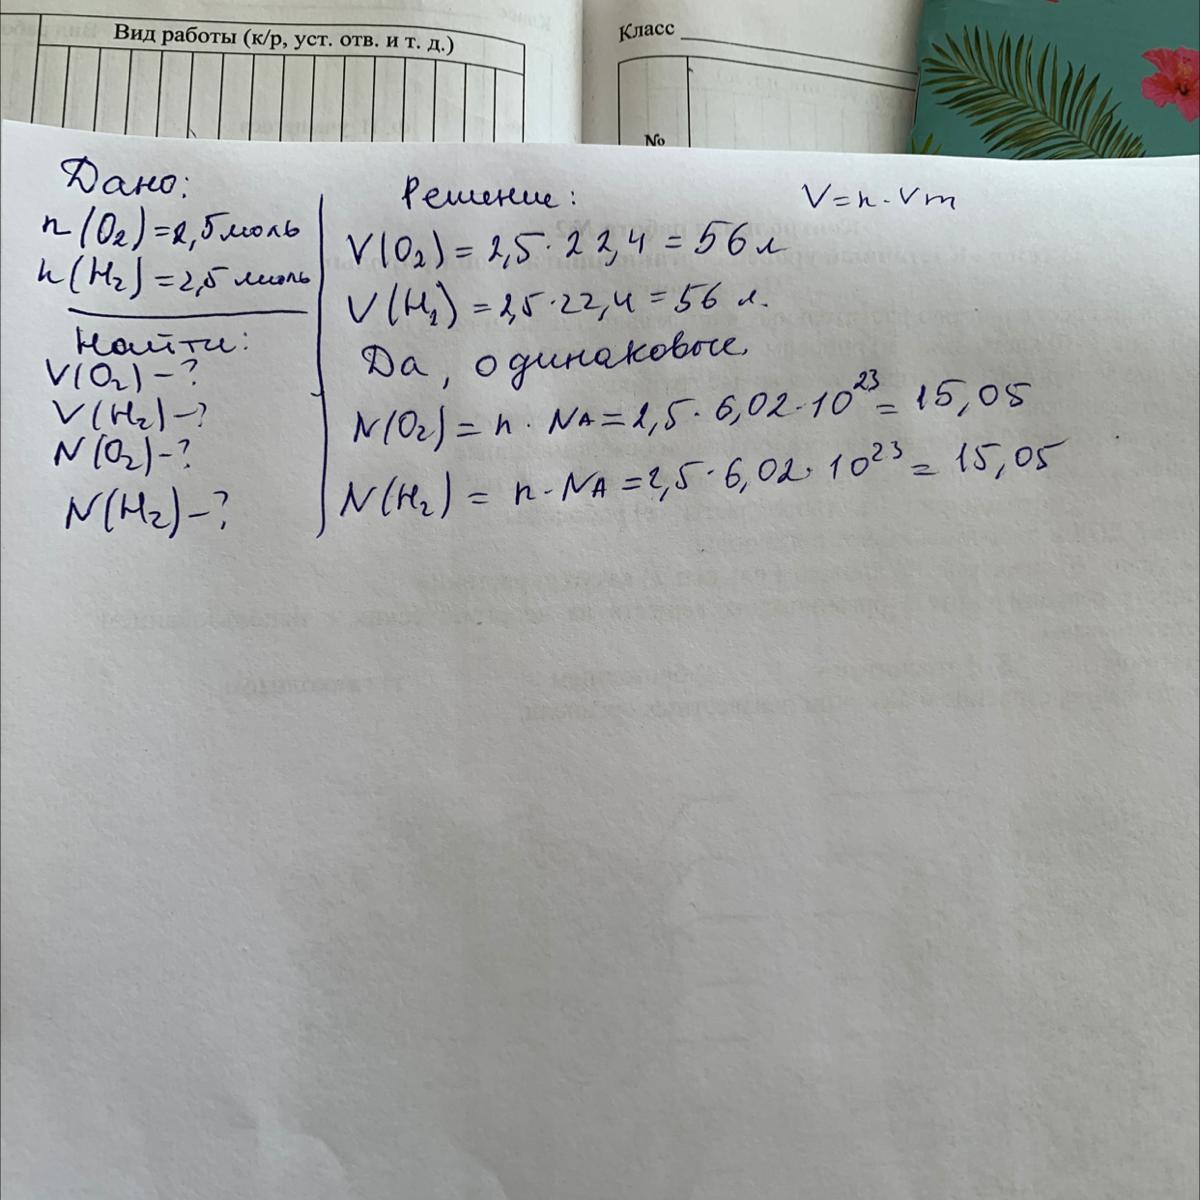 Вид работы (к/р, уст. отв. и т. д.)
Класс
No
Дано:
n(O2)=2,5 моль
n(H2)=2,5 моль
Найти:
V(O2)-?
V(H2)-?
N(O2)-?
N(H2)-?
Решение:
V=n·Vm
V(O2)=2,5·22,4=56 л
V(H2)=2,5·22,4=56 л.
Да, одинаковые.
N(O2)=n·NA=2,5·6,02·10²³=15,05
N(H2)=n·NA=2,5·6,02·10²³=15,05